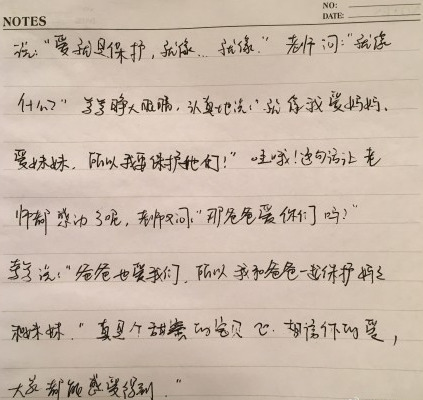 NOTES
NO:
DATE:
说:"爱就是保护,就像...就像." 老师问:"就像
什么?" 睁大眼睛,认真地说:"就像我爱妈妈,
爱妹妹,所以我要保护她们!" 哇哦!这句话让老
师都感动了呢,老师又问:"那爸爸爱你们吗?"
说:"爸爸也爱我们,所以我和爸爸一起保护妈妈
和妹妹." 真是个甜蜜的宝贝 相信你的爱,
大家都能感受得到."